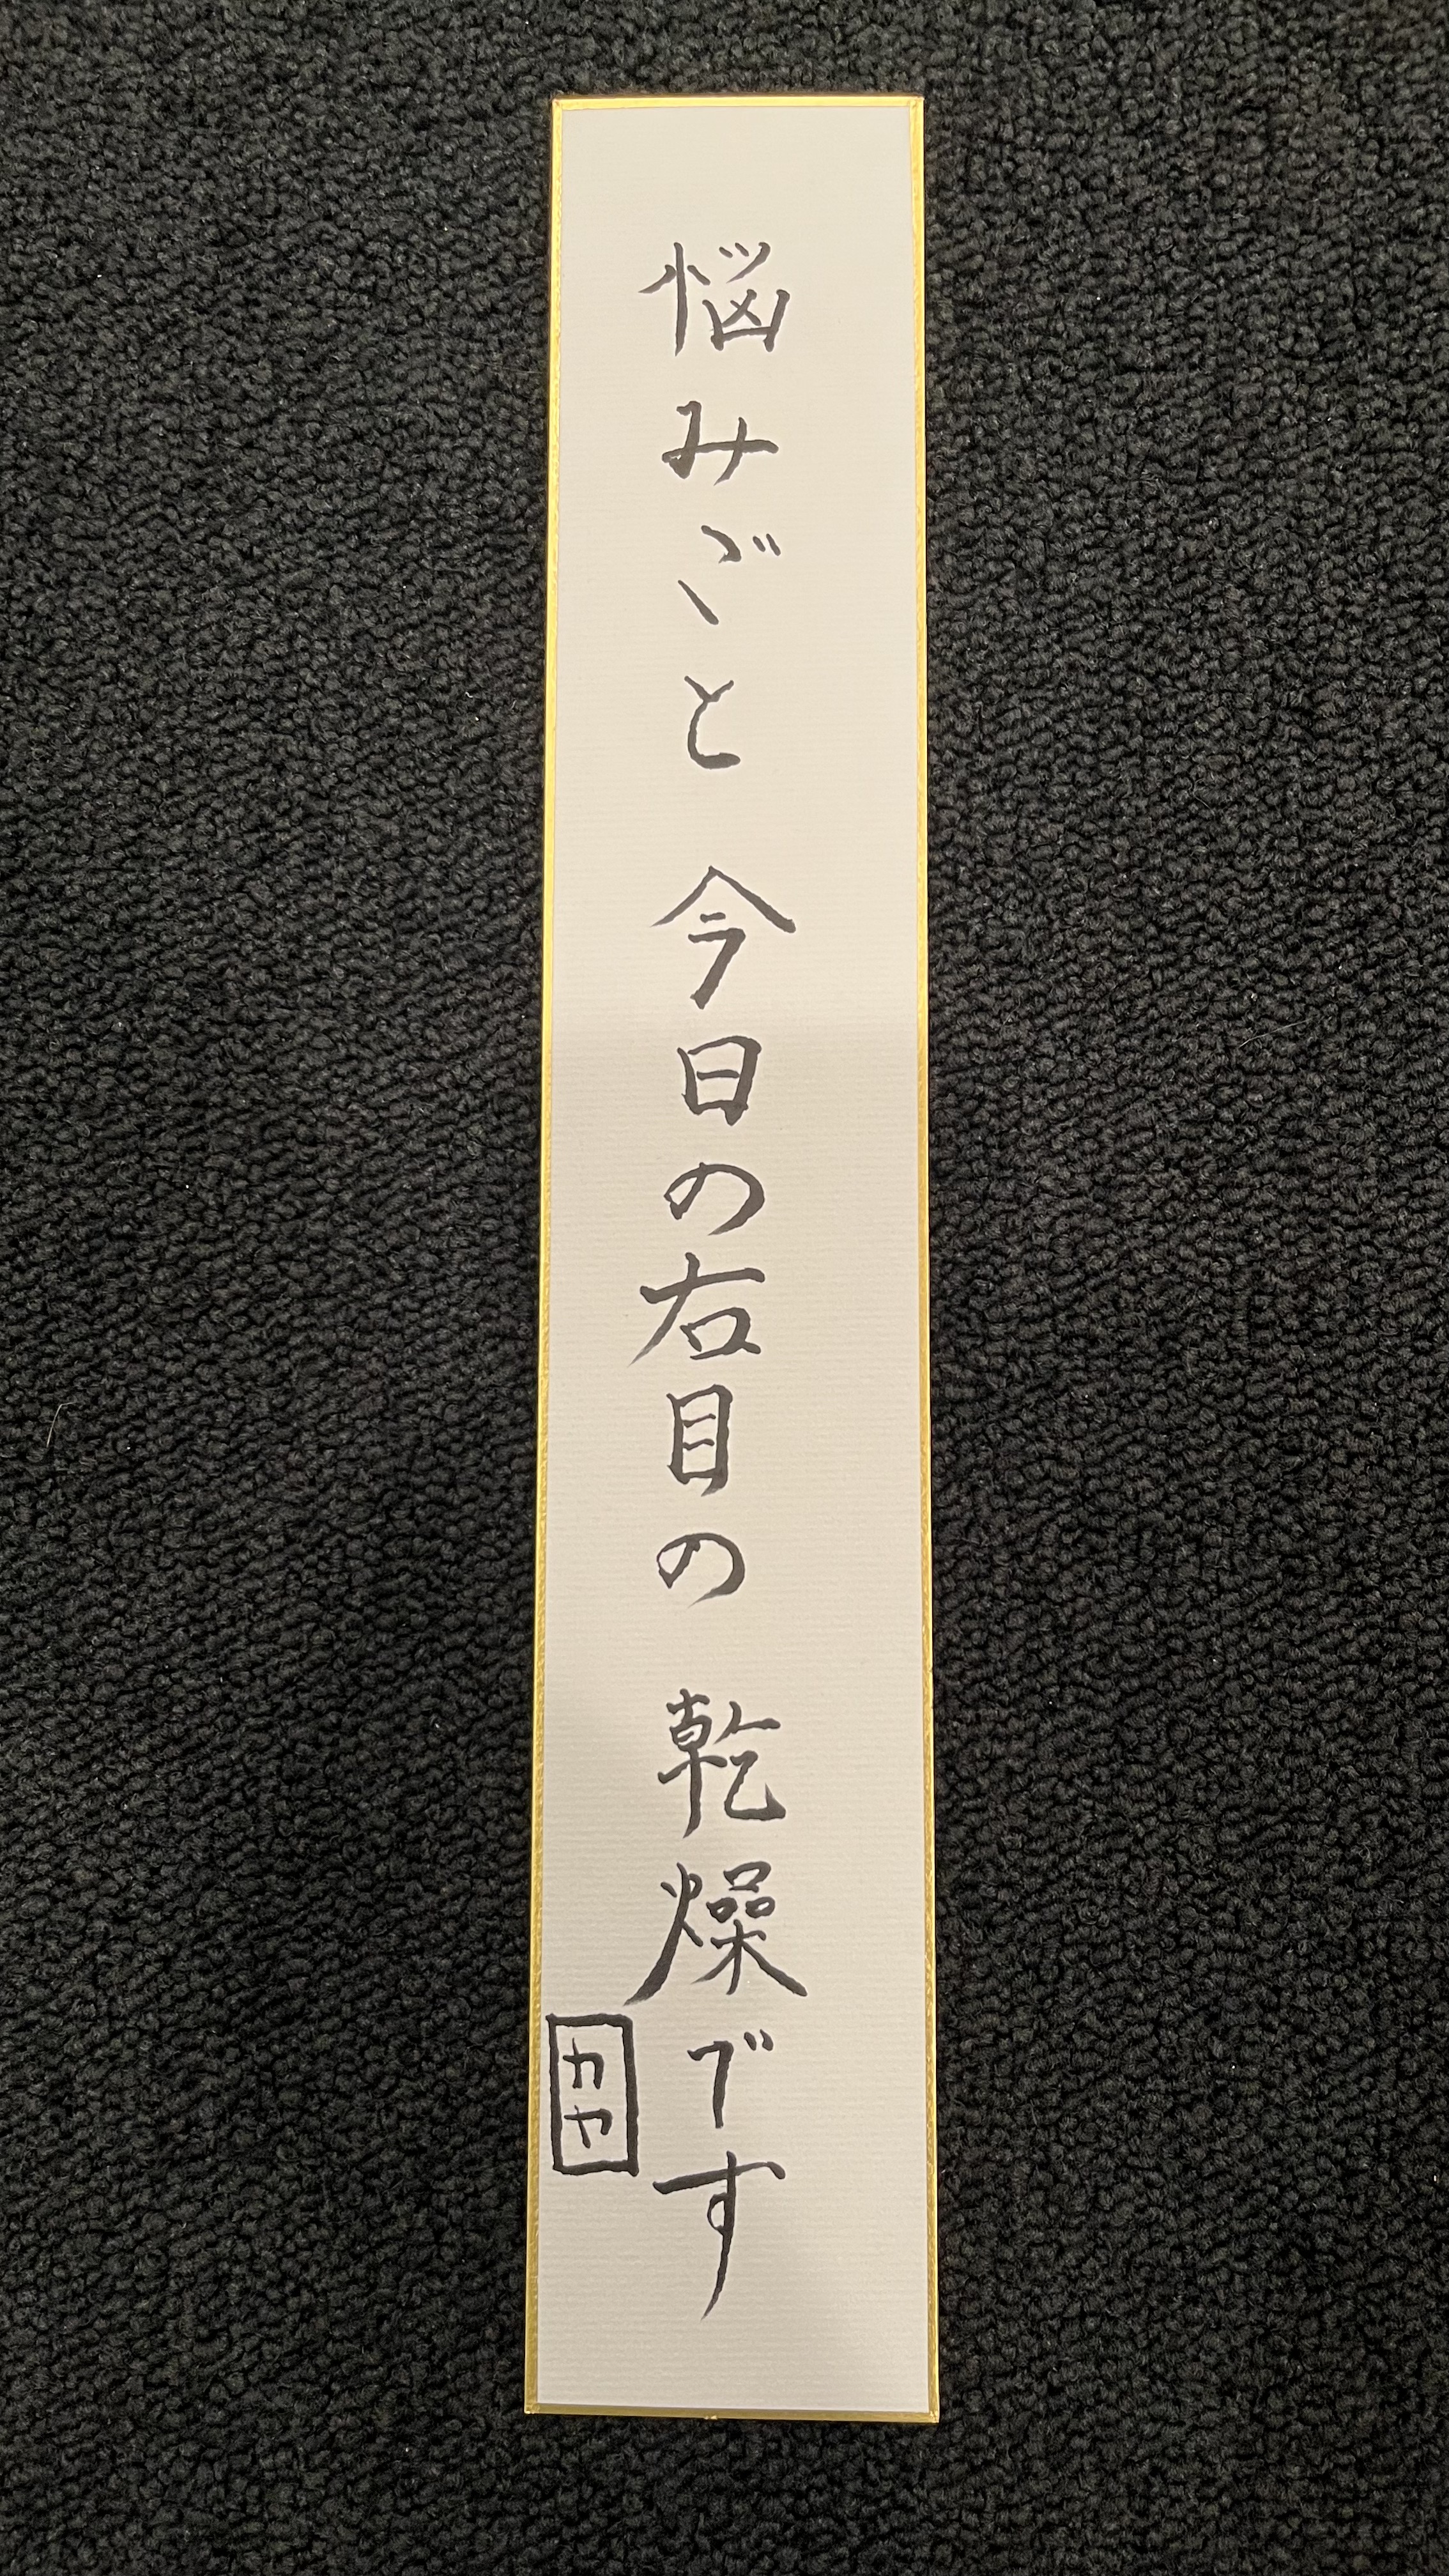 悩みごと 今日の右目の 乾燥です
カヤ